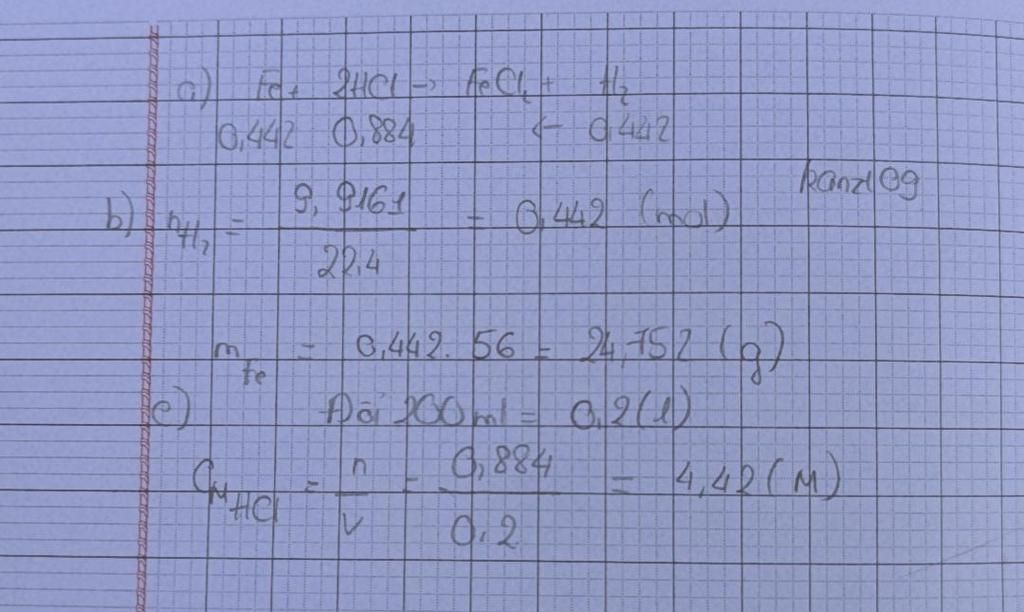 a) Fe + 2HCl → FeCl₂ + H₂
0,442 0,884 ← 0,442
kanzl09
b) nH₂ = 9,9161 / 22,4 = 0,442 (mol)
mFe = 0,442. 56 = 24,752 (g)
c) Đổi 200ml = 0,2(l)
CM HCl = n / V = 0,884 / 0,2 = 4,42 (M)